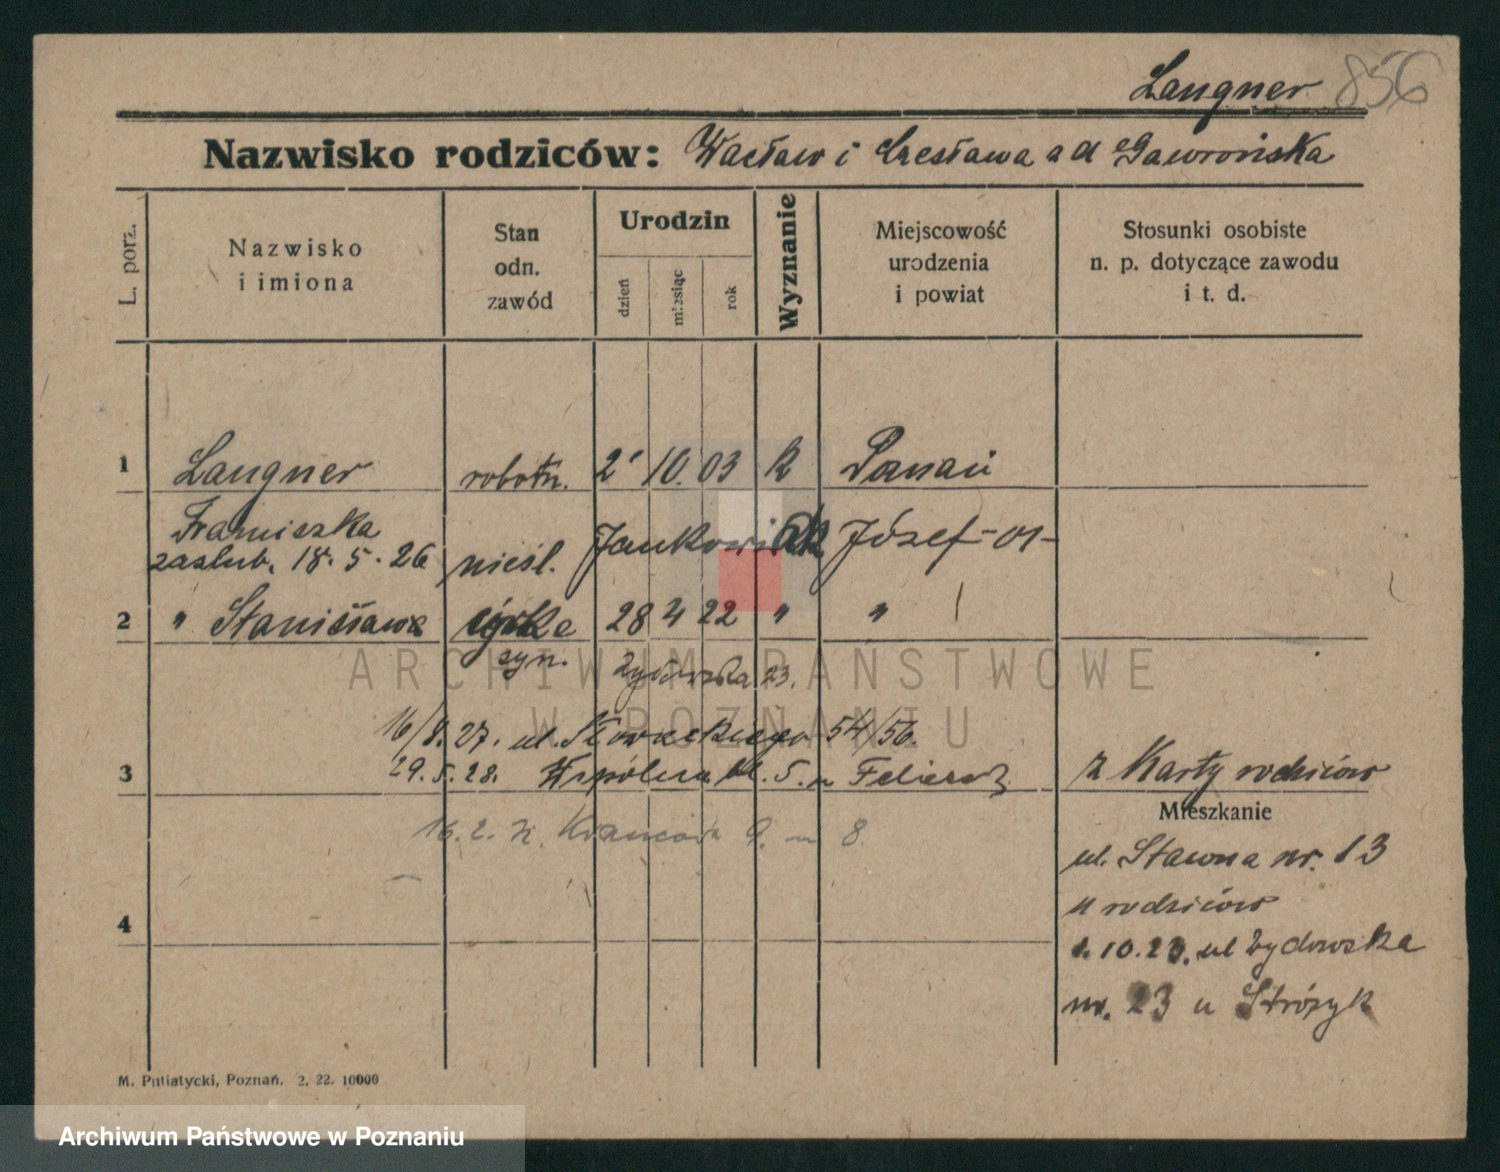 Langner 856
Nazwisko rodziców: Wacław i Czesława z d Gawrońska
L. porz.
Nazwisko
i imiona
Stan
odn.
zawód
Urodzin
dzień
miesiąc
rok
Wyznanie
Miejscowość
urodzenia
i powiat
Stosunki osobiste
n. p. dotyczące zawodu
i t. d.
1 Langner robotn. 2 10. 03 k Poznań
Franciszka
zaslub. 18. 5. 26 nieśl. Jankowiak Józef - 01 -
2 " Stanisława córka 28 4 22 " "
syn. Żydowska 23.
16/8. 27. ul. Słowackiego 54/56.
3 29. 5. 28. Wspólna 5. u
z Karty rodziców
16. 2. 9. m 8
Mieszkanie
ul. Stawna nr. 13
u rodziców
4
1. 10. 23. ul Żydowska
nr. 23 u Stróżyk
M. Putiatycki, Poznań. 2. 22. 10000
ARCHIWUM PAŃSTWOWE
W POZNANIU
Archiwum Państwowe w Poznaniu